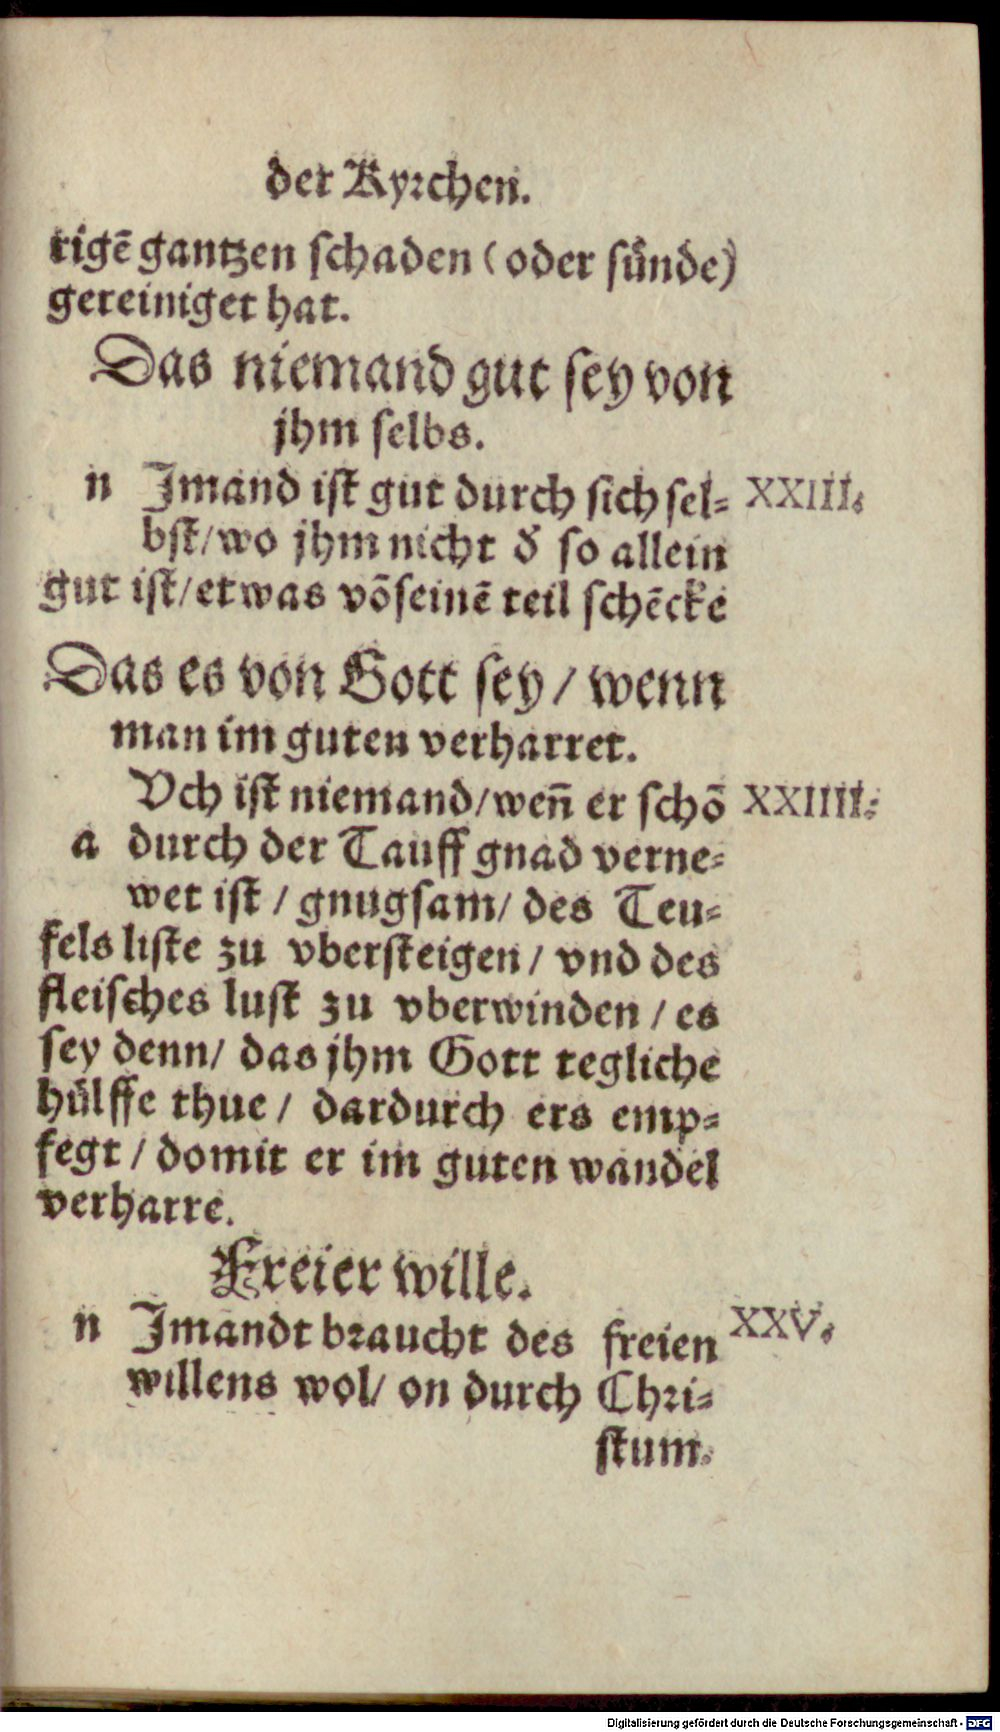 der Kyrchen.
rigē gantzen schaden (oder sünde)
gereiniget hat.
Das niemand gut sey von
jhm selbs.
n Imand ist gut durch sich sel= XXIII.
bst/wo jhm nicht d̄ so allein
gut ist/etwas vō seinē teil schēcke
Das es von Gott sey / wenn
man im guten verharret.
Vch ist niemand/weñ er schō XXIIII.
a durch der Tauff gnad verne=
wet ist / gnugsam/ des Teu=
fels liste zu vbersteigen / vnd des
fleisches lust zu vberwinden / es
sey denn/ das jhm Gott tegliche
hülffe thue / dardurch ers emp=
fegt / domit er im guten wandel
verharre.
Freier wille.
n Imandt braucht des freien XXV.
willens wol/ on durch Chri=
stum.
Digitalisierung gefördert durch die Deutsche Forschungsgemeinschaft - DFG